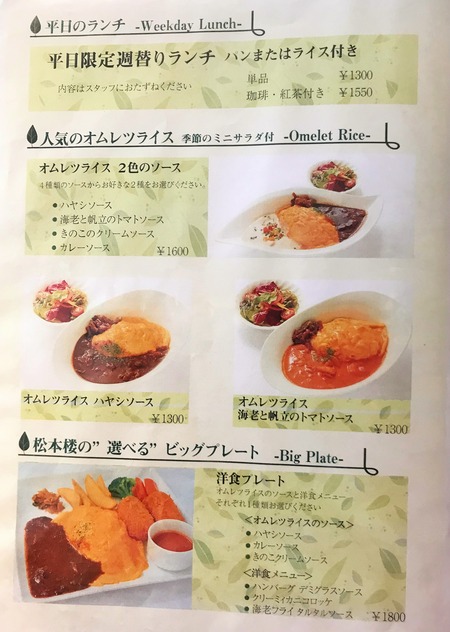 平日のランチ -Weekday Lunch-
平日限定週替りランチ パンまたはライス付き
内容はスタッフにおたずねください
単品 ￥1300
珈琲・紅茶付き ￥1550
人気のオムレツライス 季節のミニサラダ付 -Omelet Rice-
オムレツライス 2色のソース
4種類のソースからお好きな2種をお選びください。
●ハヤシソース
●海老と帆立のトマトソース
●きのこのクリームソース
●カレーソース
￥1600
オムレツライス ハヤシソース
￥1300
オムレツライス
海老と帆立のトマトソース
￥1300
松本楼の”選べる”ビッグプレート -Big Plate-
洋食プレート
オムレツライスのソースと洋食メニュー
それぞれ1種類お選びください
<オムレツライスのソース>
●ハヤシソース
●カレーソース
●きのこクリームソース
<洋食メニュー>
●ハンバーグ デミグラスソース
●クリーミィカニコロッケ
●海老フライ タルタルソース
￥1800